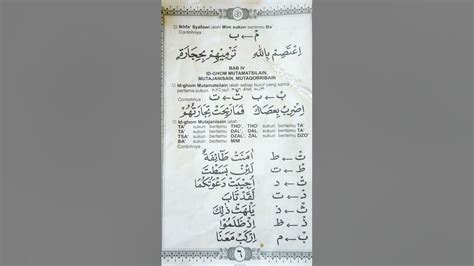 Ikhfa' Syafawi ialah Mim sukun bertemu Ba'
Contohnya :
مْ ← ب
اِعْتَصِمْ بِاللهِ تَرْمِيْهِمْ بِحِجَارَةٍ
BAB IV
ID-GHOM MUTAMATSILAIN,
MUTAJANISAIN, MUTAQORRIBAIN
Id-ghom Mutamatsilain ialah setiap huruf yang sama
pertama sukun
Contohnya :
بْ ← ب تْ ← ت
اِضْرِبْ بِعَصَاكَ فَمَارَبِحَتْ تِجَارَتُهُمْ
Id-ghom Mutajanisain ialah
TA' sukun bertemu THO', THO' sukun bertemu TA'
TA' sukun bertemu DAL', DAL' sukun bertemu TA'
TSA' sukun bertemu DZAL, ZAL sukun bertemu DZO'
BA' sukun bertemu MIM
Contohnya :
تْ ← ط اٰمَنَتْ طَائِفَةٌ
طْ ← ت لَئِنْ بَسَطْتَ
تْ ← د اُجِيْبَتْ دَعْوَتُكُمَا
دْ ← ت لَقَدْ تَابَ
ثْ ← ذ يَلْهَثْ ذٰلِكَ
ذْ ← ظ اِذْ ظَلَمُوْا
بْ ← م اِرْكَبْ مَعَنَا
٦